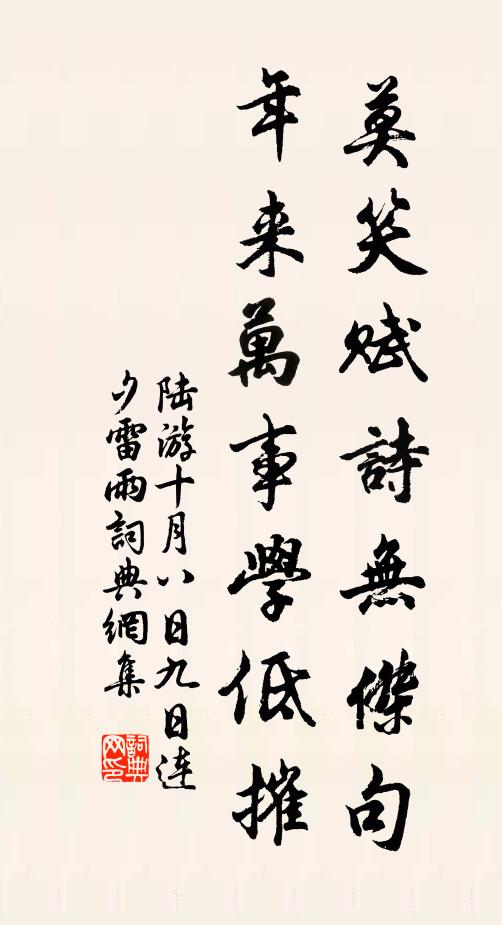 莫笑赋詩無傑句
年来萬事學低摧
陆游十月八日九日连
夕雷雨詞典網集
詞典
网印